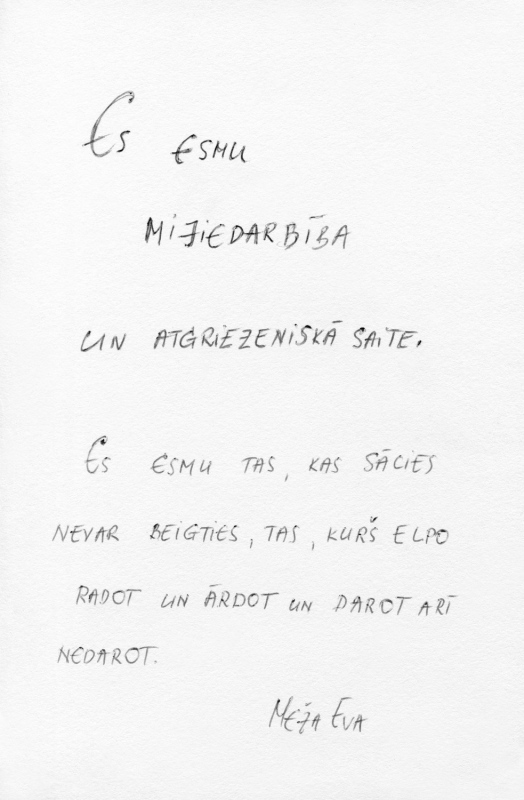 Es esmu
mijiedarbība
un atgriezeniskā saite.
Es esmu tas, kas sācies
nevar beigties, tas, kurš elpo
radot un ārdot un darot arī
nedarot.
Meža Eva